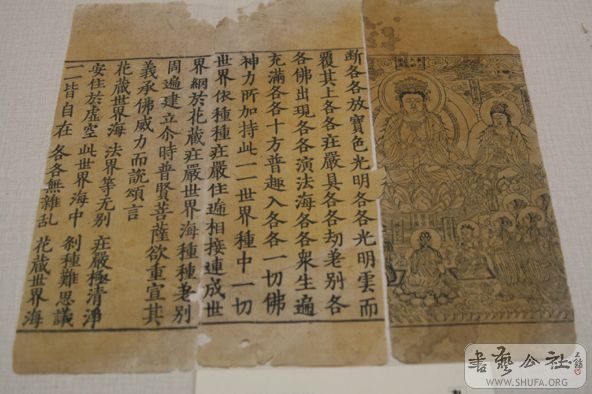 断各各放寶色光明各各光明雲而
覆其上各各庄嚴具各各劫差別各
各佛出現各各演法海各各衆生遍
充滿各各十方普趣入各各一切佛
神力所加持此一一世界種中一切
世界依種種庄嚴住遞相接連成世
界網於花藏庄嚴世界海種種差別
周遍建立尒時普賢菩薩欲重宣其
義承佛威力而說頌言
花藏世界海 法界等无别 庄嚴極清淨
安住於虛空 此世界海中 刹種難思議
一一皆自在 各各無雜乱 花藏世界海
書藝公社
WWW.SHUFA.ORG